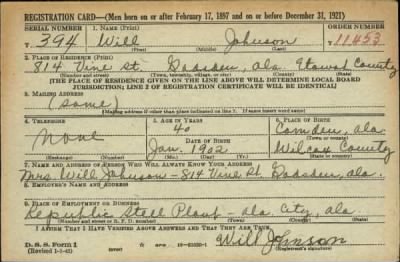 REGISTRATION CARD—(Men born on or after February 17, 1897 and on or before December 31, 1921)
SERIAL NUMBER 1. NAME (Print) ORDER NUMBER
T 394 Will Johnson T 11453
(First) (Middle) (Last)
2. PLACE OF RESIDENCE (Print)
814 Vine St. Gadsden, Ala Etowah County
(Number and street) (Town, township, village, or city) (County) (State)
[THE PLACE OF RESIDENCE GIVEN ON THE LINE ABOVE WILL DETERMINE LOCAL BOARD
JURISDICTION; LINE 2 OF REGISTRATION CERTIFICATE WILL BE IDENTICAL]
3. MAILING ADDRESS
(Same)
[Mailing address if other than place indicated on line 2. If same insert word same]
4. TELEPHONE 5. AGE IN YEARS 6. PLACE OF BIRTH
None 40 Camden, Ala.
DATE OF BIRTH (Town or county)
Jan. 1902 Wilcox County
(Exchange) (Number) (Mo.) (Day) (Yr.) (State or country)
7. NAME AND ADDRESS OF PERSON WHO WILL ALWAYS KNOW YOUR ADDRESS
Mrs. Will Johnson – 814 Vine St. Gadsden, Ala.
8. EMPLOYER'S NAME AND ADDRESS
Republic Steel Plant – Ala. City, Ala
9. PLACE OF EMPLOYMENT OR BUSINESS
(Number and street or R. F. D. number) (Town) (County) (State)
I AFFIRM THAT I HAVE VERIFIED ABOVE ANSWERS AND THAT THEY ARE TRUE.
D. S. S. Form 1
(Revised 1-1-42) (over) Will Johnson
(Registrant's signature)